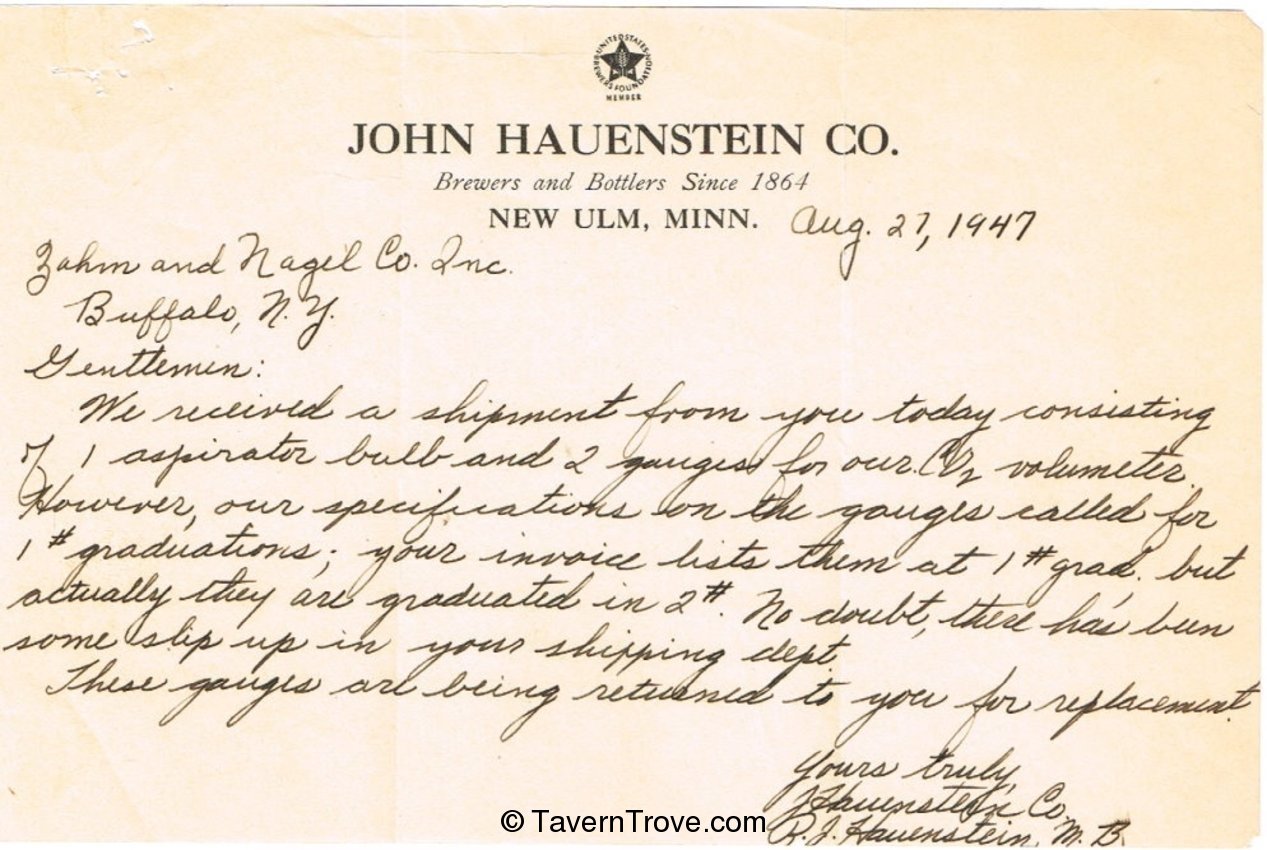 UNITED STATES BREWERS FOUNDATION
MEMBER
JOHN HAUENSTEIN CO.
Brewers and Bottlers Since 1864
NEW ULM, MINN. Aug. 27, 1947
Zahm and Nagel Co. Inc.
Buffalo, N.Y.
Gentlemen:
We received a shipment from you today consisting
of 1 aspirator bulb and 2 gauges for our CO2 volumeter.
However, our specifications on the gauges called for
1# graduations; your invoice lists them at 1# grad. but
actually they are graduated in 2#. No doubt, there has been
some slip up in your shipping dept.
These gauges are being returned to you for replacement.
Yours truly,
J Hauenstein Co.
R. J. Hauenstein, M. B.
© TavernTrove.com